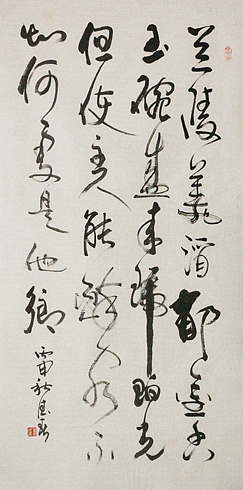 蘭陵美酒郁金香
玉碗盛來琥珀光
但使主人能醉客不
知何處是他鄉
丙申秋